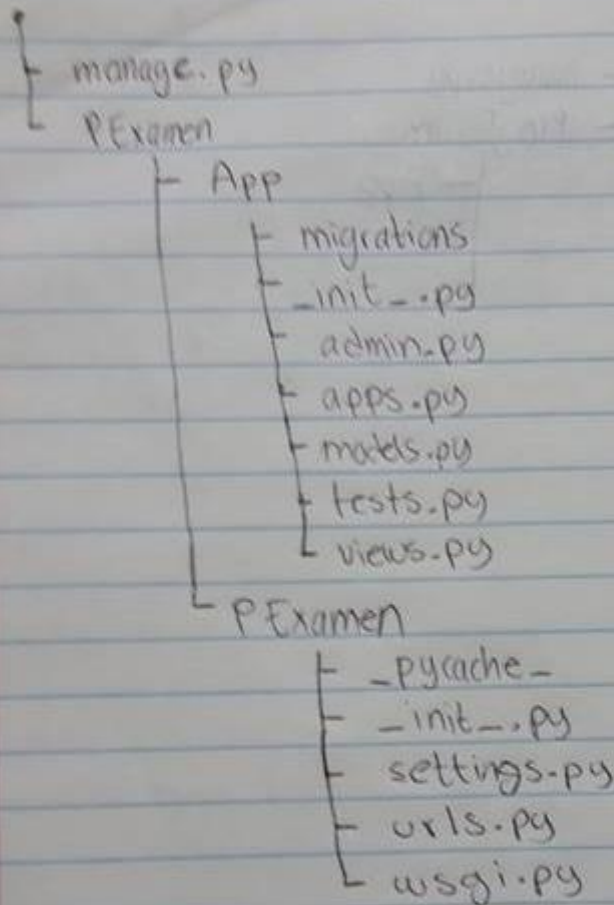 manage.py
PExamen
App
migrations
_init_.py
admin.py
apps.py
models.py
tests.py
views.py
PExamen
_pycache_
_init_.py
settings.py
urls.py
wsgi.py